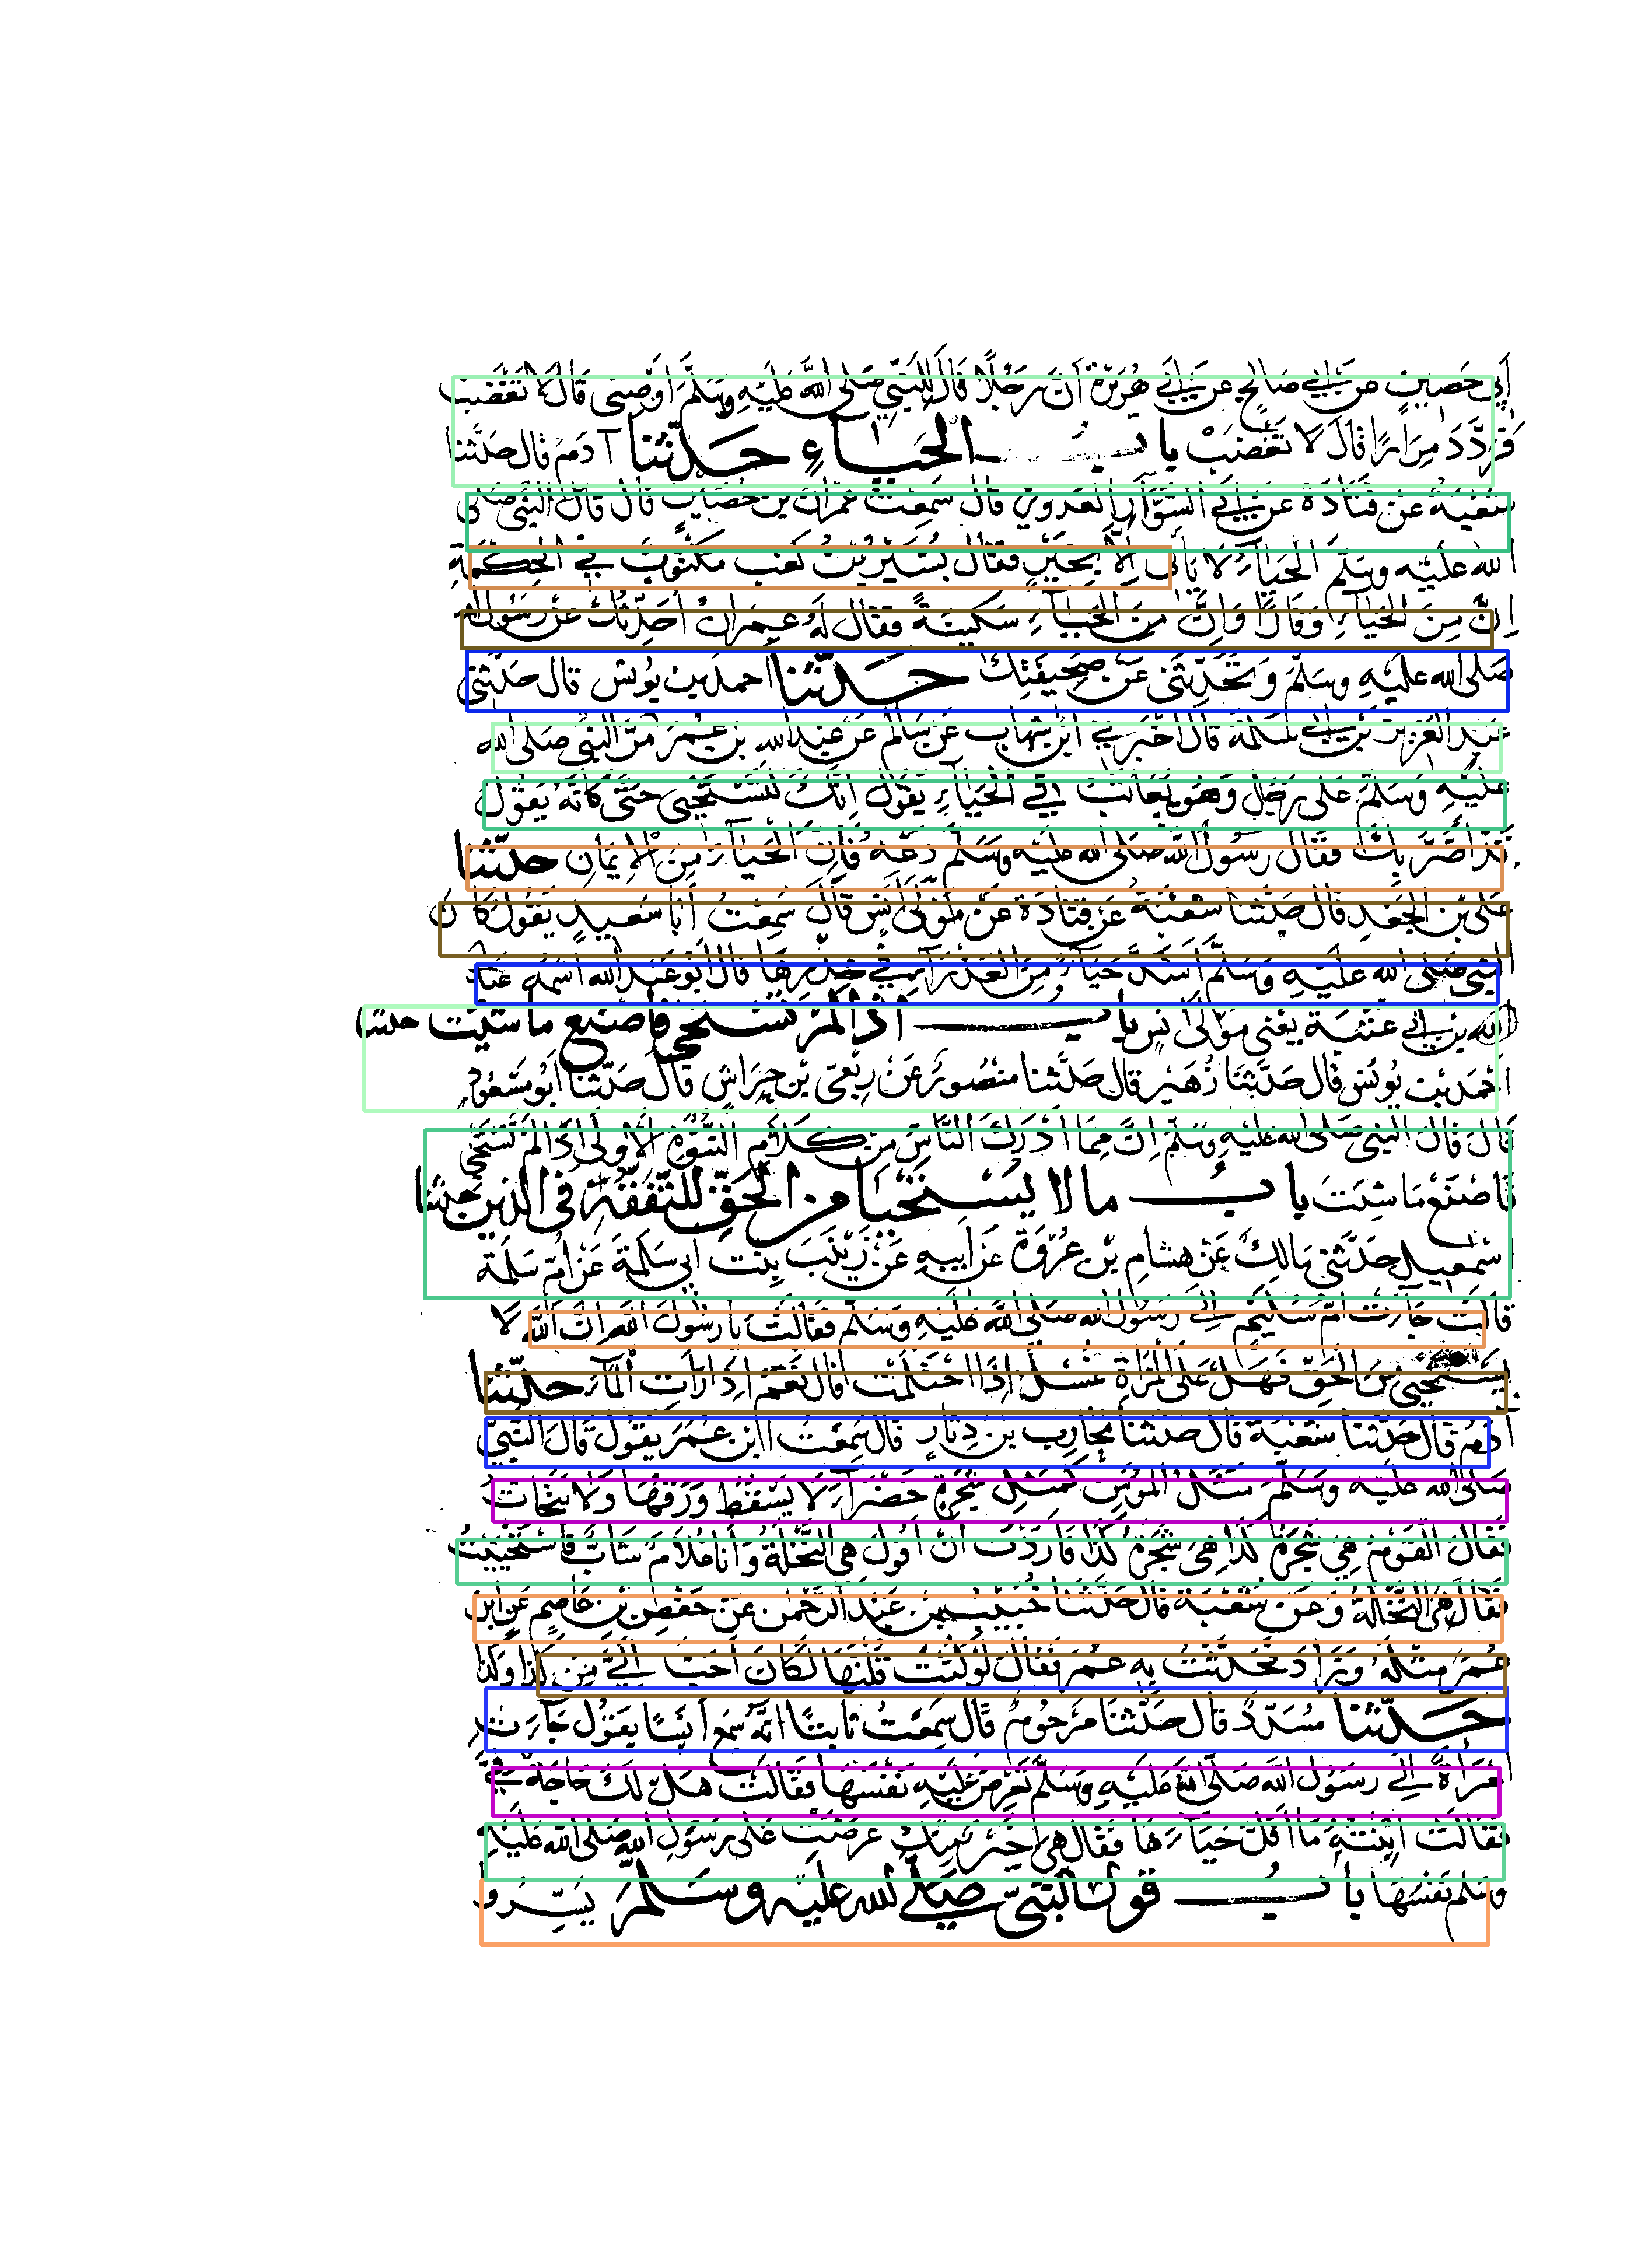 أبي حصين عن أبي صالح عن أبي هريرة أن رجلا قال للنبي صلى الله عليه وسلم أوصني قال لا تغضب
فردد مرارا قال لا تغضب باب الحياء حدثنا آدم قال حدثنا
شعبة عن قتادة عن أبي السوار العدوي قال سمعت عمران بن حصين قال قال النبي صلى
الله عليه وسلم الحياء لا يأتي إلا بخير فقال بشير بن كعب مكتوب في الحكمة
إن من الحياء وقارا وإن من الحياء سكينة فقال له عمران أحدثك عن رسول الله
صلى الله عليه وسلم وتحدثني عن صحيفتك حدثنا أحمد بن يونس قال حدثني
عبد العزيز بن أبي سلمة قال أخبرني ابن شهاب عن سالم عن عبد الله بن عمر مر النبي صلى الله
عليه وسلم على رجل وهو يعاتب في الحياء يقول إنك لتستحيي حتى كأنه يقول
قد أضر بك فقال رسول الله صلى الله عليه وسلم دعه فإن الحياء من الإيمان حدثنا
علي بن الجعد قال حدثنا شعبة عن قتادة عن مولى أنس قال سمعت أبا سعيد يقول كان
النبي صلى الله عليه وسلم أشد حياء من العذراء في خدرها قال أبو عبد الله اسمه عبد
الله بن أبي عتبة يعني مولى أنس باب إذا لم تستحي فاصنع ما شئت حدثنا
أحمد بن يونس قال حدثنا زهير قال حدثنا منصور عن ربعي بن حراش قال حدثنا أبو مسعود
قال قال النبي صلى الله عليه وسلم إن مما أدرك الناس من كلام النبوة الأولى إذا لم تستحي
فاصنع ما شئت باب ما لا يستحيا من الحق للتفقه في الدين حدثنا
اسمعيل حدثني مالك عن هشام بن عروة عن أبيه عن زينب بنت أبي سلمة عن أم سلمة
قالت جاءت أم سليم إلى رسول الله صلى الله عليه وسلم فقالت يا رسول الله إن الله لا
يستحيي من الحق فهل على المرأة غسل إذا احتلمت قال نعم إذا رأت الماء حدثنا
آدم قال حدثنا شعبة قال حدثنا محارب بن دثار قال سمعت ابن عمر يقول قال النبي
صلى الله عليه وسلم مثل المؤمن كمثل شجرة خضراء لا يسقط ورقها ولا يتحات
فقال القوم هي شجرة كذا هي شجرة كذا فأردت أن أقول هي النخلة وأنا غلام شاب فاستحييت
فقال هي النخلة وعن شعبة قال حدثنا خبيب بن عبد الرحمن عن حفص بن عاصم عن ابن
عمر مثله وزاد فحدثت به عمر فقال لو كنت قلتها لكان أحب إلي من كذا وكذا
حدثنا مسدد قال حدثنا مرحوم قال سمعت ثابتا أنه سمع أنسا يقول جاءت
امرأة إلى رسول الله صلى الله عليه وسلم تعرض عليه نفسها فقالت هل لك حاجة في
فقالت ابنته ما أقل حياءها فقال هي خير منك عرضت على رسول الله صلى الله عليه
وسلم نفسها باب قول النبي صلى الله عليه وسلم يسروا